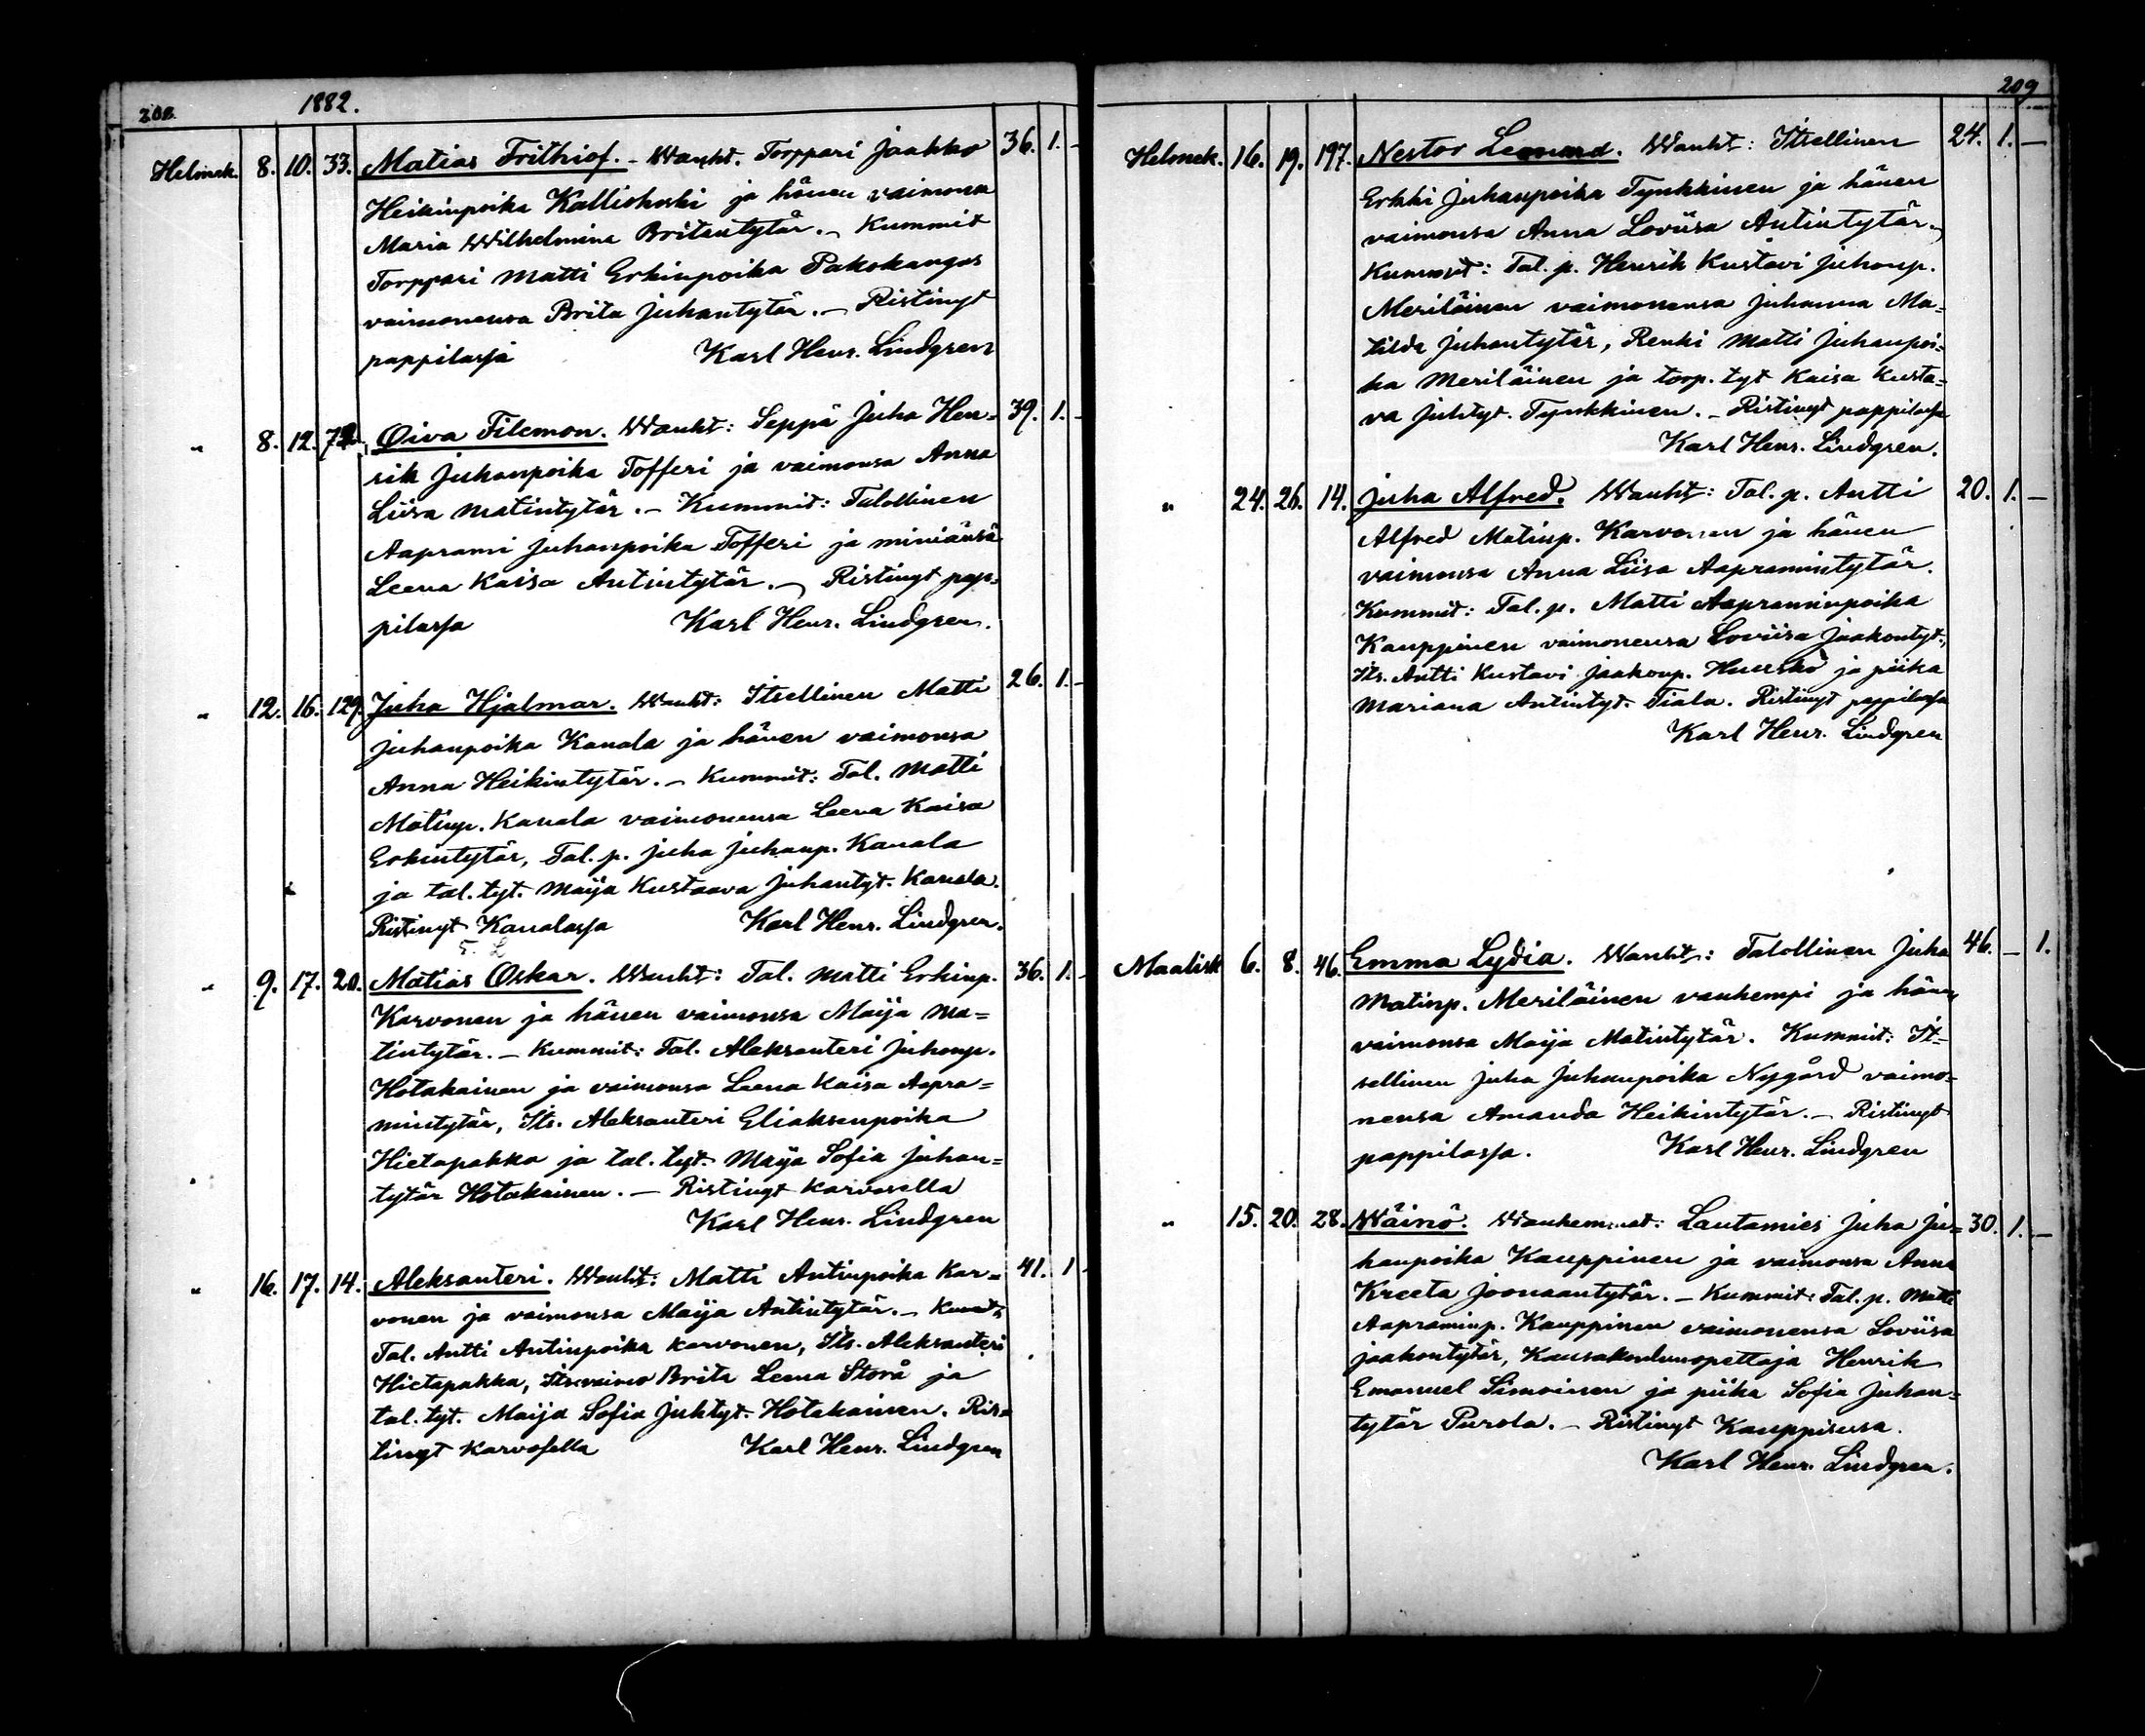 208. 1882.
Helmck. 8. 10. 33. Matias Frithiof. – Wanht. Torppari Jaakko 36. 1. –
Heikinpoika Kalliokoski ja hänen vaimonsa
Maria Wilhelmina Britantytär. – Kummit
Torppari Matti Erkinpoika Pakokangas
vaimonensa Brita Juhantytär. – Ristinyt
pappilassa Karl Henr. Lindgren
" 8. 12. Oiva Filemon. Wanht: Seppä Juha Hen= 39. 1. –
rik Juhanpoika Tofferi ja vaimonsa Anna
Liisa Matintytär. – Kummit: Talollinen
Aaprami Juhanpoika Tofferi ja miniänsä
Leena Kaisa Antintytär. – Ristinyt pap=
pilassa Karl Henr. Lindgren.
" 12. 16. 129. Juha Hjalmar. Wanht: Itsellinen Matti 26. 1. –
Juhanpoika Kanala ja hänen vaimonsa
Anna Heikintytär. – Kummit: Tal. Matti
Matinp. Kanala vaimonensa Leena Kaisa
Erkintytär, Tal. p. Juha Juhanp. Kanala
ja tal. tyt. Maija Kustaava Juhantyt. Kanala.
Ristinyt Kanalassa Karl Henr. Lindgren.
" 9. 17. 20. Matias Oskar. Wanht: Tal. Matti Erkinp. 36. 1. –
Karvonen ja hänen vaimonsa Maija Ma=
tintytär. – Kummit: Tal. Aleksanteri Juhanp.
Hotakainen ja vaimonsa Leena Kaisa Aapra=
mintytär, Its. Aleksanteri Eliaksenpoika
Hietapakka ja tal. tyt. Maija Sofia Juhan=
tytär Hotakainen. – Ristinyt Karvosella
Karl Henr. Lindgren
" 16. 17. 14. Aleksanteri. Wanht: Matti Antinpoika Kar= 41. 1 –
vonen ja vaimonsa Maija Antintytär. –
Tal. Antti Antinpoika Karvonen, Its. Aleksanteri
Hietapakka, Its. vaimo Brita Leena Storå ja
tal. tyt. Maija Sofia Juhtyt. Hotakainen. Ris=
tinyt Karvosella Karl Henr. Lindgren
209
Helmck. 16. 19. 197. Nestor Leonard. Wanht: Itsellinen 24. 1. –
Erkki Juhanpoika Tynkkinen ja hänen
vaimonsa Anna Loviisa Antintytär. –
Kummit: Tal. p. Henrik Kustavi Juhanp.
Meriläinen vaimonensa Juhanna Ma=
tilda Juhantytär, Renki Matti Juhanpoi=
ka Meriläinen ja torp. tyt Kaisa Kusta=
va Juhtyt. Tynkkinen. – Ristinyt pappilassa
Karl Henr. Lindgren.
" 24. 26. 14. Juha Alfred. Wanht: Tal. p. Antti 20. 1. –
Alfred Matinp. Karvonen ja hänen
vaimonsa Anna Liisa Aapramintytär.
Kummit: Tal. p. Matti Aapraminpoika
Kauppinen vaimonensa Loviisa Jaakontyt.,
Its. Antti Kustavi Jaakonp. Huusko ja piika
Mariana Antintyt. Tiala. Ristinyt pappilassa
Karl Henr. Lindgren
Maalisk 6. 8. 46. Emma Lydia. Wanht: Talollinen Juha 46. – 1.
Matinp. Meriläinen vanhempi ja hänen
vaimonsa Maija Matintytär. Kummit: It=
sellinen Juha Juhanpoika Nygård vaimo=
nensa Amanda Heikintytär. – Ristinyt
pappilassa. Karl Henr. Lindgren
" 15. 20. 28. Wäinö. Wanhemmat: Lautamies Juha Ju= 30. 1. –
hanpoika Kauppinen ja vaimonsa Anna
Kreeta Joonaantytär. – Kummit: Tal. p. Matti
Aapraminp. Kauppinen vaimonensa Loviisa
Jaakontytär, Kansakoulunopettaja Henrik
Emanuel Simoinen ja piika Sofia Juhan=
tytär Purola. – Ristinyt Kauppisessa.
Karl Henr. Lindgren.